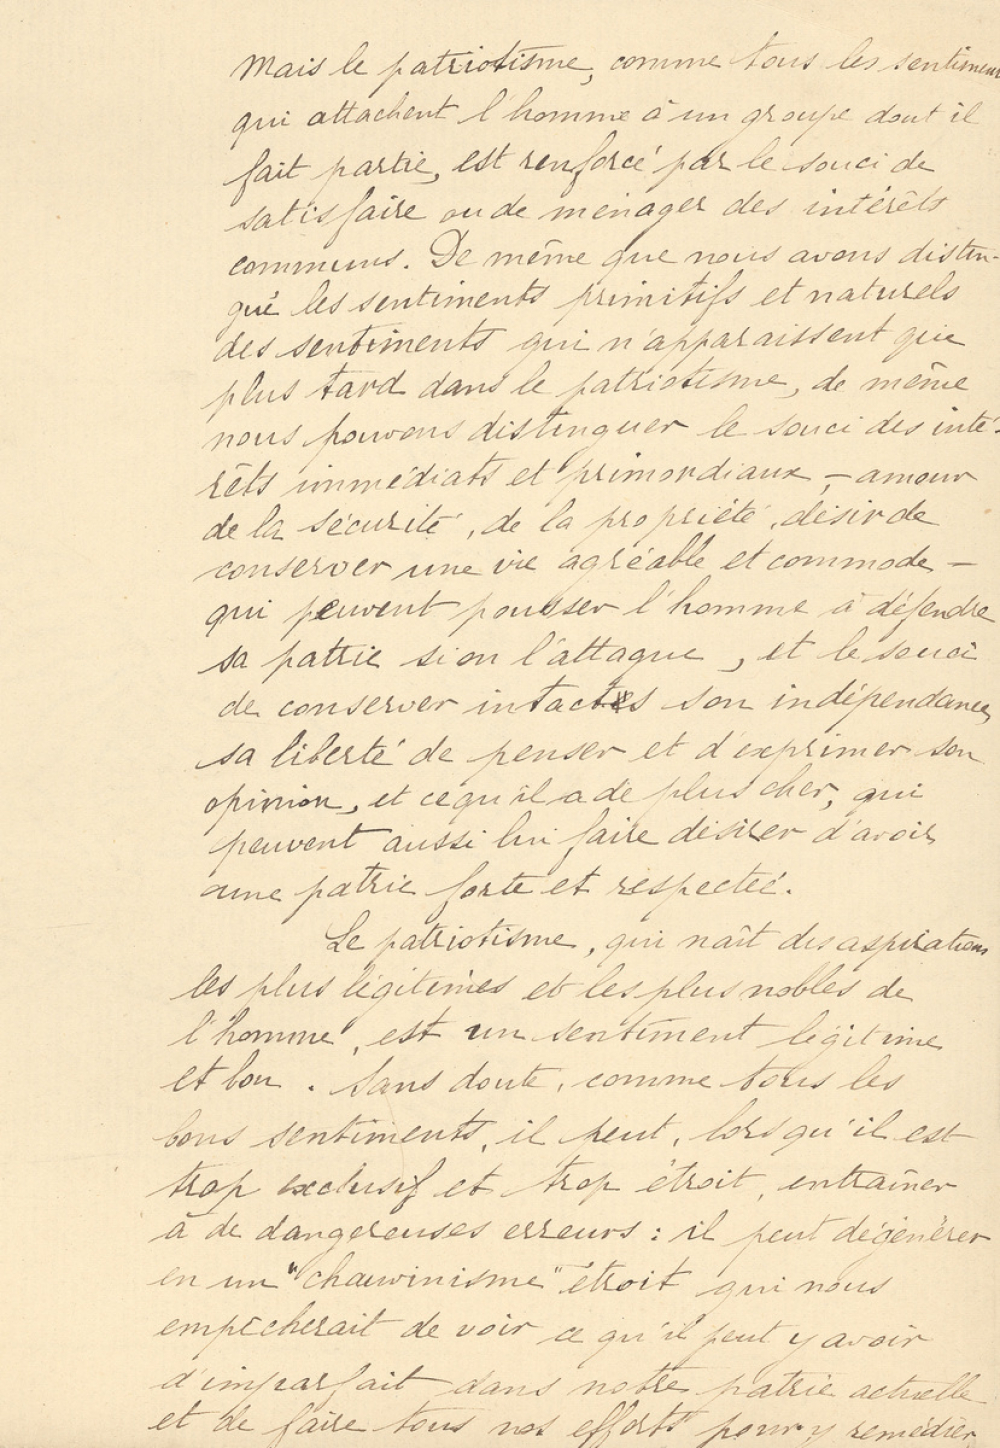 Mais le patriotisme, comme tous les sentiments
qui attachent l'homme à un groupe dont il
fait partie, est renforcé par le souci de
satisfaire ou de ménager des intérêts
communs. De même que nous avons distin-
gué les sentiments primitifs et naturels
des sentiments qui n'apparaissent que
plus tard dans le patriotisme, de même
nous pouvons distinguer le souci des inté-
rêts immédiats et primordiaux, – amour
de la sécurité, de la propriété, désir de
conserver une vie agréable et commode –
qui peuvent pousser l'homme à défendre
sa patrie si on l'attaque, et le souci
de conserver intacts son indépendance,
sa liberté de penser et d'exprimer son
opinion, et ce qu'il a de plus cher, qui
peuvent aussi lui faire désirer d'avoir
une patrie forte et respectée.
Le patriotisme, qui naît des aspirations
les plus légitimes et les plus nobles de
l'homme, est un sentiment légitime
et bon. Sans doute, comme tous les
bons sentiments, il peut, lorsqu'il est
trop exclusif et trop étroit, entraîner
à de dangereuses erreurs : il peut dégénérer
en un "chauvinisme" étroit qui nous
empêcherait de voir ce qu'il peut y avoir
d'imparfait dans notre patrie actuelle
et de faire tous nos efforts pour y remédier,